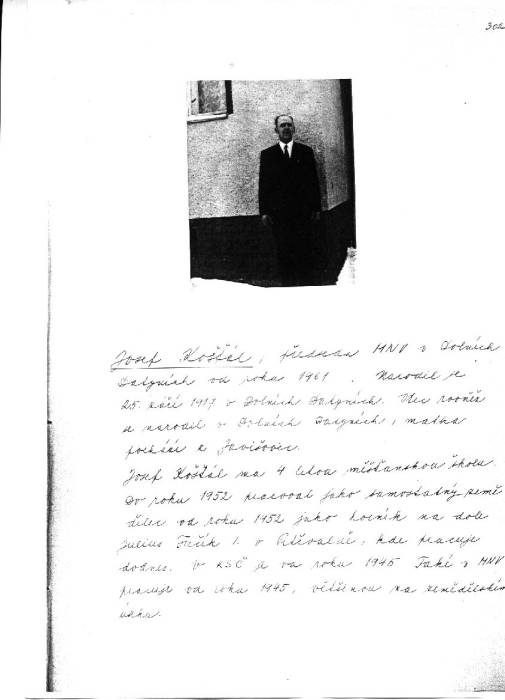 302
Josef Košťál, předseda MNV v Dolních
Datyních od roku 1961. Narodil se
25. září 1917 v Dolních Datyních. Otec rovněž
se narodil v Dolních Datyních, matka
pochází z Javišovic.
Josef Košťál má 4 letou měšťanskou školu.
Do roku 1952 pracoval jako samostatný země
dělec od roku 1952 jako horník na dole
Julius Fučík 1. v Petřvaldě, kde pracuje
dodnes. V KSČ je od roku 1945 Také v MNV
pracuje od roku 1945, většinou na zemědělském
úseku.